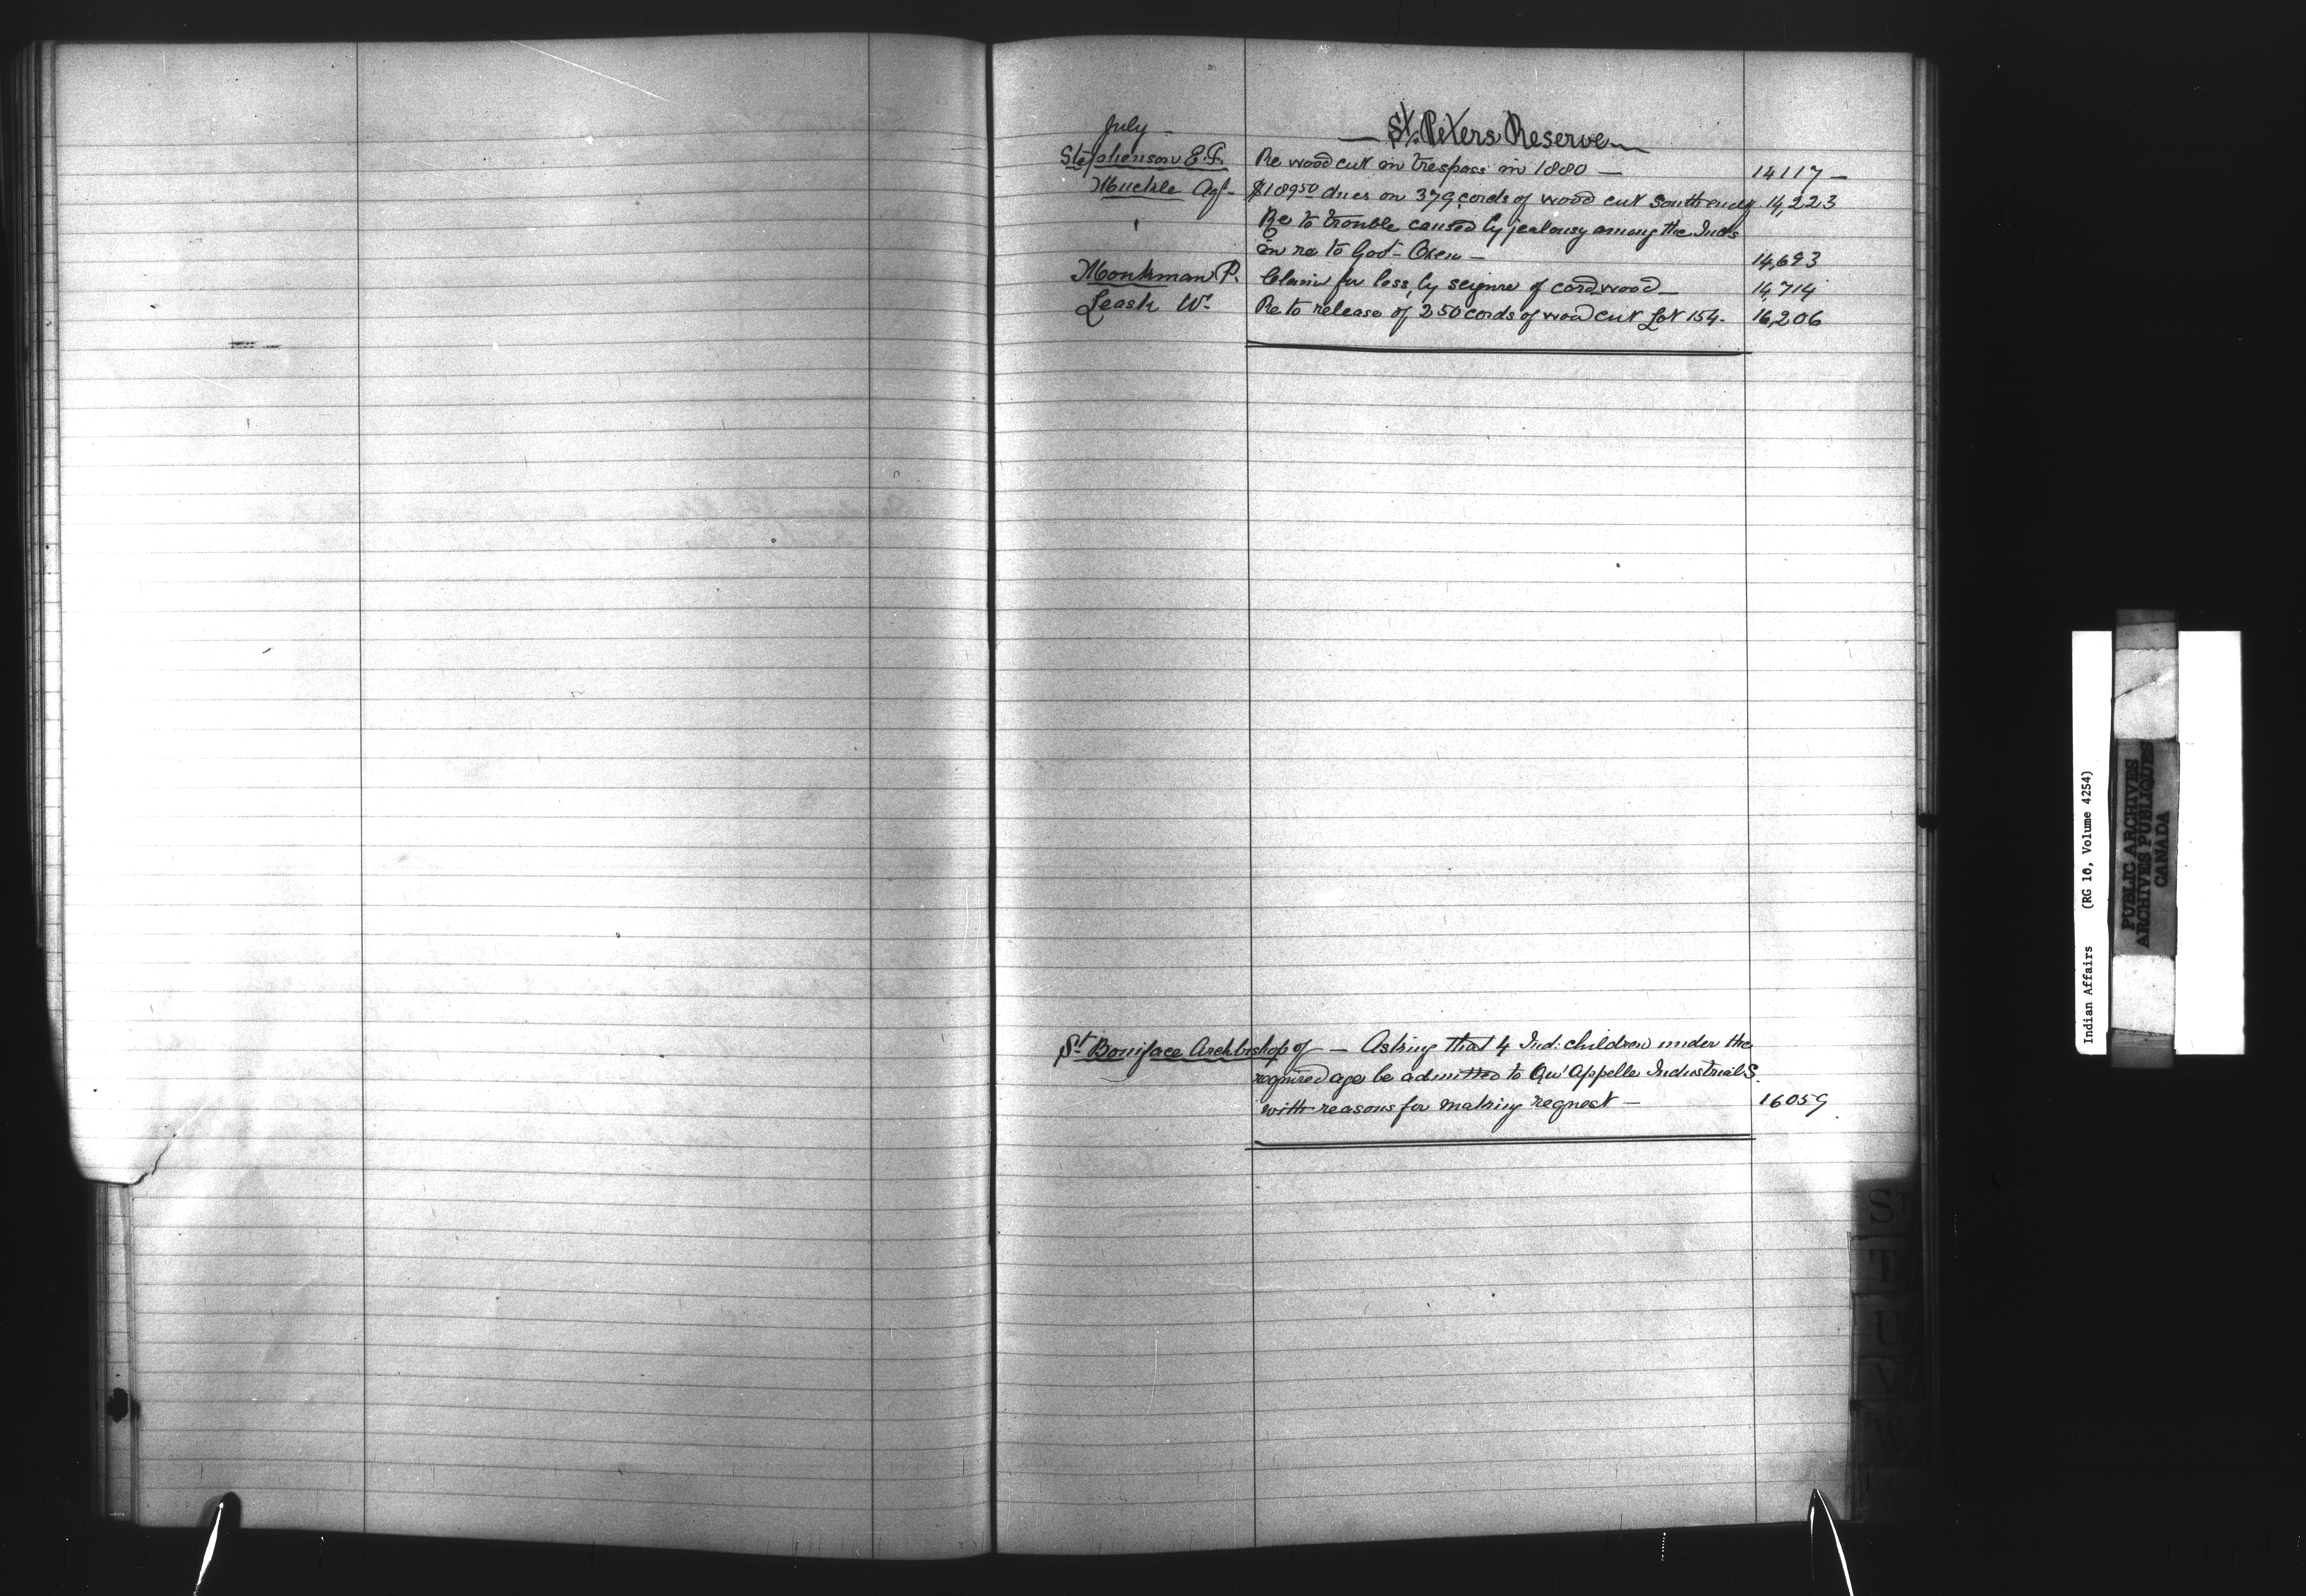 July
St. Peters Reserve
Stephenson E. F. Re wood cut in trespass in 1880 — 14117 —
Muckle Agt. $189 50 dues on 379 cords of wood cut South end 14,223
" Re to trouble caused by jealousy among the Inds
in re to Govt Oxen — 14,693
Monkman P. Claim for loss by seizure of cordwood — 14,714
Leask W. Re to release of 250 cords of wood cut Lot 154. 16,206
St Boniface Archbishop of — Asking that 4 Ind: children under the
required age be admitted to Qu'Appelle Industrial S.
with reasons for making request — 16059
ST
T
U
V
W
Indian Affairs (RG 10, Volume 4254)
PUBLIC ARCHIVES
ARCHIVES PUBLIQUES
CANADA